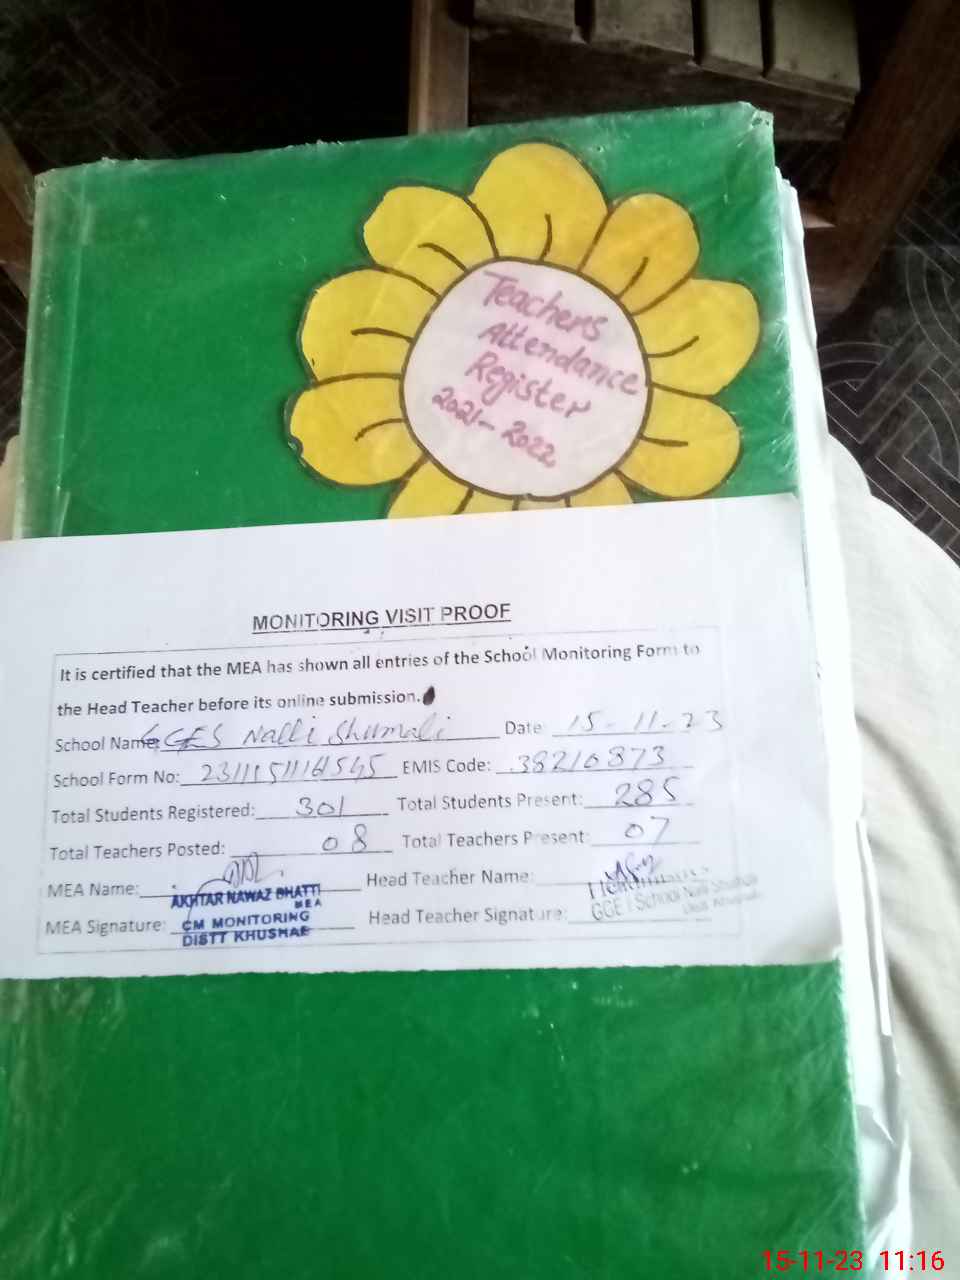 Teachers
Attendance
Register
2021-2022
MONITORING VISIT PROOF
It is certified that the MEA has shown all entries of the School Monitoring Form to
the Head Teacher before its online submission.
School Name: GGES Nalli Shumali Date: 15-11-23
School Form No: EMIS Code: 38210873
Total Students Registered: 301 Total Students Present: 285
Total Teachers Posted: 08 Total Teachers Present: 07
MEA Name: Head Teacher Name:
AKHTAR NAWAZ BHATTI
MEA
MEA Signature: CM MONITORING Head Teacher Signature:
DISTT KHUSHAB
15-11-23 11:16